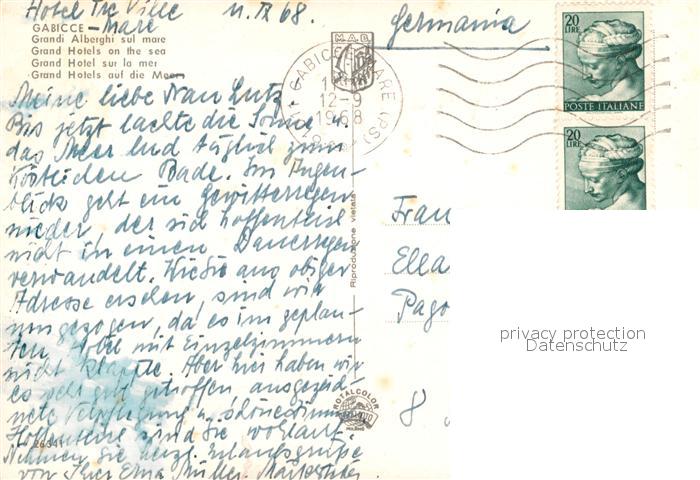 Hotel Tre Ville 11.IX 68.
GABICCE - Mare
Grandi Alberghi sul mare
Grand Hotels on the sea
Grand Hotel sur la mer
Grand Hotels auf die Meer
Germania
M.A.B.
GABICCE MARE (PS)
12-9
1968
20 LIRE
POSTE ITALIANE
20 LIRE
Meine liebe Frau Lutz
Bis jetzt lachte die Sonne u.
das Meer lud täglich zum
köstlichen Bade. Im Augen-
blick geht ein Gewitterregen
nieder, der sich hoffentlich
nicht in einen Dauerregen
verwandelt. Wie Sie aus obiger
Adresse ersehen, sind wir
umgezogen, da es im geplan-
ten Hotel mit Einzelzimmern
nicht klappte. Aber hier haben wir
es sehr gut getroffen, ausgezeich-
nete Verpflegung u. schöne Zimmer.
Hoffentlich sind Sie wohlauf.
Nehmen Sie herzl. Urlaubsgrüße
von Ihrer Erna Müller.
Riproduzione vietata
Frau
Ella
Pago
8
ROTALCOLOR
MILANO
26341
privacy protection
Datenschutz